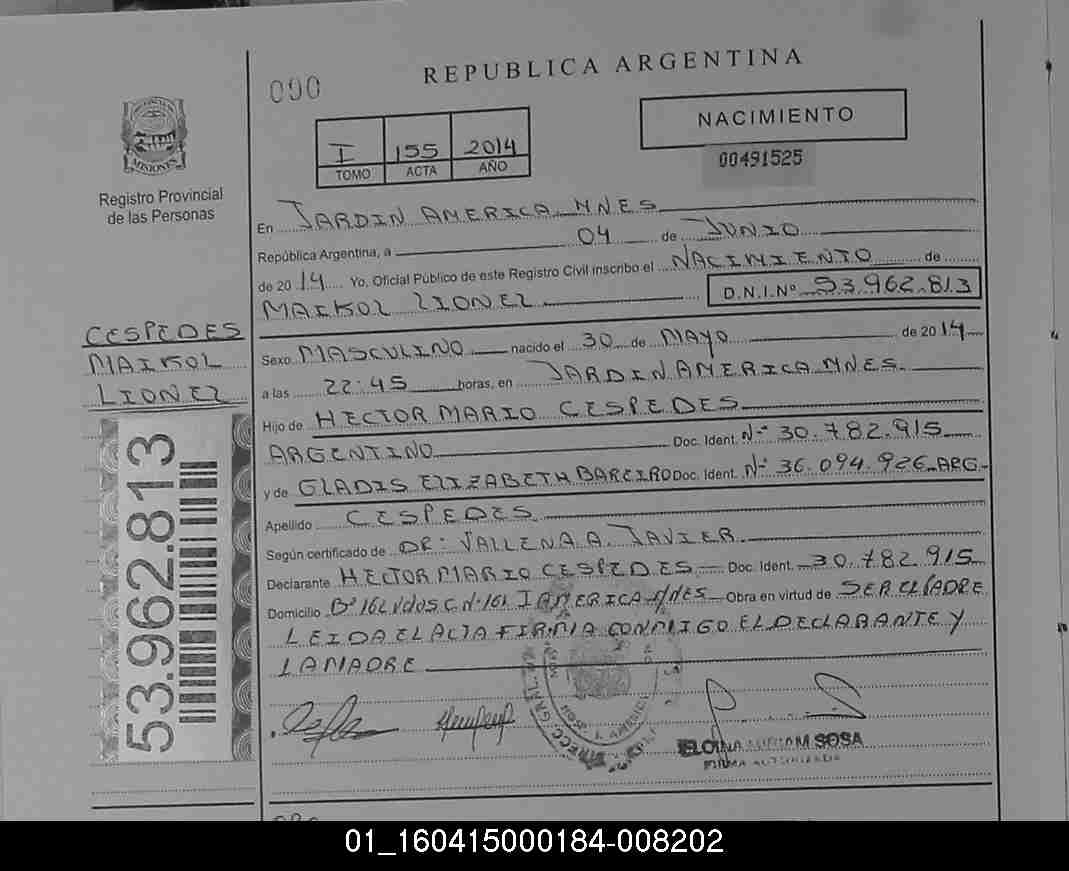 REPUBLICA ARGENTINA
000
NACIMIENTO
00491525
I 155 2014
TOMO ACTA AÑO
MISIONES
Registro Provincial
de las Personas
En JARDIN AMERICA MNES
República Argentina, a 04 de JUNIO
de 2014 Yo. Oficial Público de este Registro Civil inscribo el NACIMIENTO de
MAIKOL LIONEL D.N.I.Nº 53.962.813
CESPEDES
MAIKOL
LIONEL
53.962.813
Sexo MASCULINO nacido el 30 de MAYO de 2014
a las 22:45 horas, en JARDIN AMERICA MNES.
Hijo de HECTOR MARIO CESPEDES
ARGENTINO Doc. Ident. Nº 30.782.915
y de GLADIS ELIZABETH BAREIRO Doc. Ident. Nº 36.094.926 ARG-
Apellido CESPEDES
Según certificado de DR: VALLENA A. JAVIER
Declarante HECTOR MARIO CESPEDES Doc. Ident. 30.782.915
Domicilio Bº 162 J AMERICA MNES Obra en virtud de SER EL PADRE
LEIDA EL ACTA FIRMA CONMIGO EL DECLARANTE Y
LA MADRE
J. AMERICA
ELOINA MIRIAM SOSA
FIRMA AUTORIZADA
01_160415000184-008202